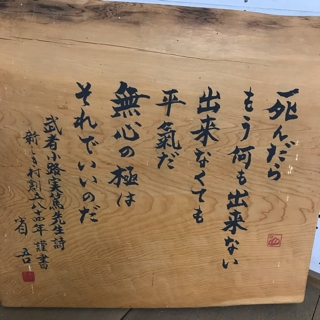 死んだら
もう何も出来ない
出来なくても
平氣だ
無心の極は
それでいいのだ
武者小路実篤先生詩
新しき村創立八十四年謹書
省吾